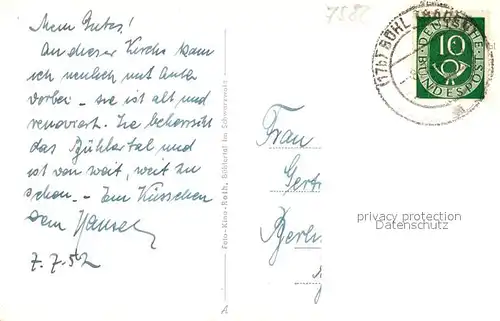 Mein Gutes!
An dieser Kirche kam
ich neulich mit Auto
vorbei - sie ist alt und
renoviert. Sie beherrscht
das Bühlertal und
ist von weit, weit zu
sehen. - Ein Küsschen
Dein Hansel
7.7.52
7582
Foto-Kino-Roth, Bühlertal im Schwarzwald
Frau
Gertr
Berli
(17b) BÜHL
DEUTSCHE
BUNDESPOST
10
privacy protection
Datenschutz